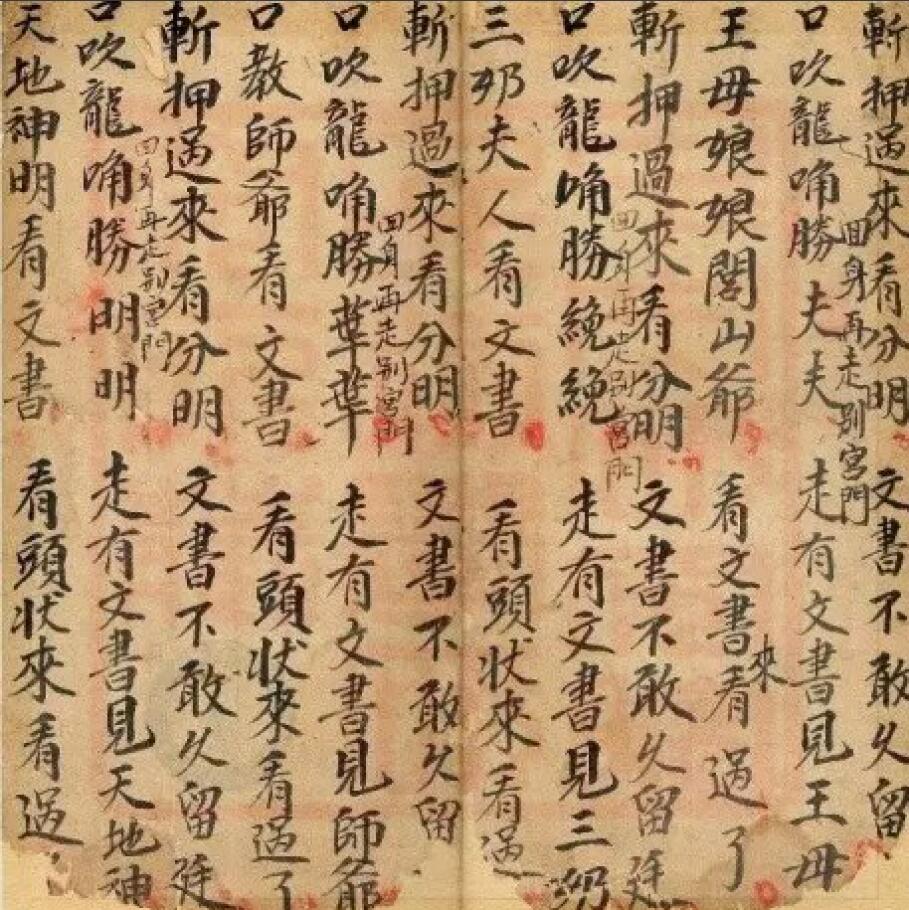 斬押過來看分明 文書不敢久留
回身再走別宮門
口吹龍唃勝夫夫 走有文書見王母
王母娘娘閭山爺 看文書來看過了
斬押過來看分明 文書不敢久留廷
回身再走別宮門
口吹龍唃勝繞繞 走有文書見三奶
三奶夫人看文書 看頭狀來看過
斬押過來看分明 文書不敢久留
回身再走別宮門
口吹龍唃勝 走有文書見師爺
口教師爺看文書 看頭狀來看過了
斬押過來看分明 文書不敢久留廷
回身再走別宮門
口吹龍唃勝明明 走有文書見天地神
天地神明看文書 看頭狀來看過